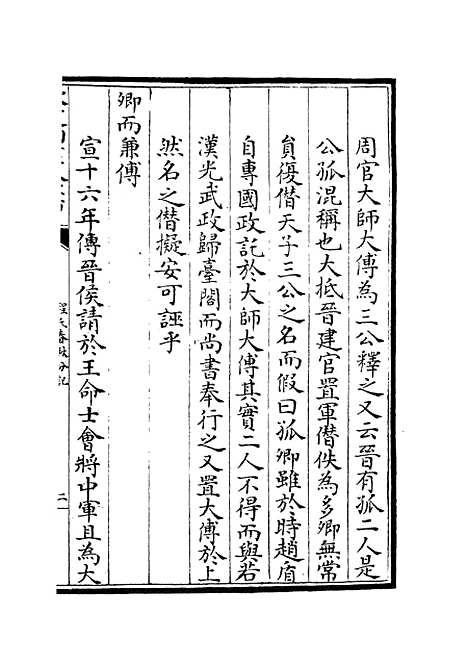 周官大師大傅為三公釋之又云晉有孤二人是
公孤混稱也大抵晉建官置軍僣佚為多卿無常
員復僣天子三公之名而假曰孤卿雖於時趙盾
自專國政託於大師大傅其實二人不得而與若
漢光武政歸臺閣而尚書奉行之又置大傅於上
然名之僣擬安可誣乎
卿而兼傅
宣十六年傳晉侯請於王命士會將中軍且為大
程氏春秋分記